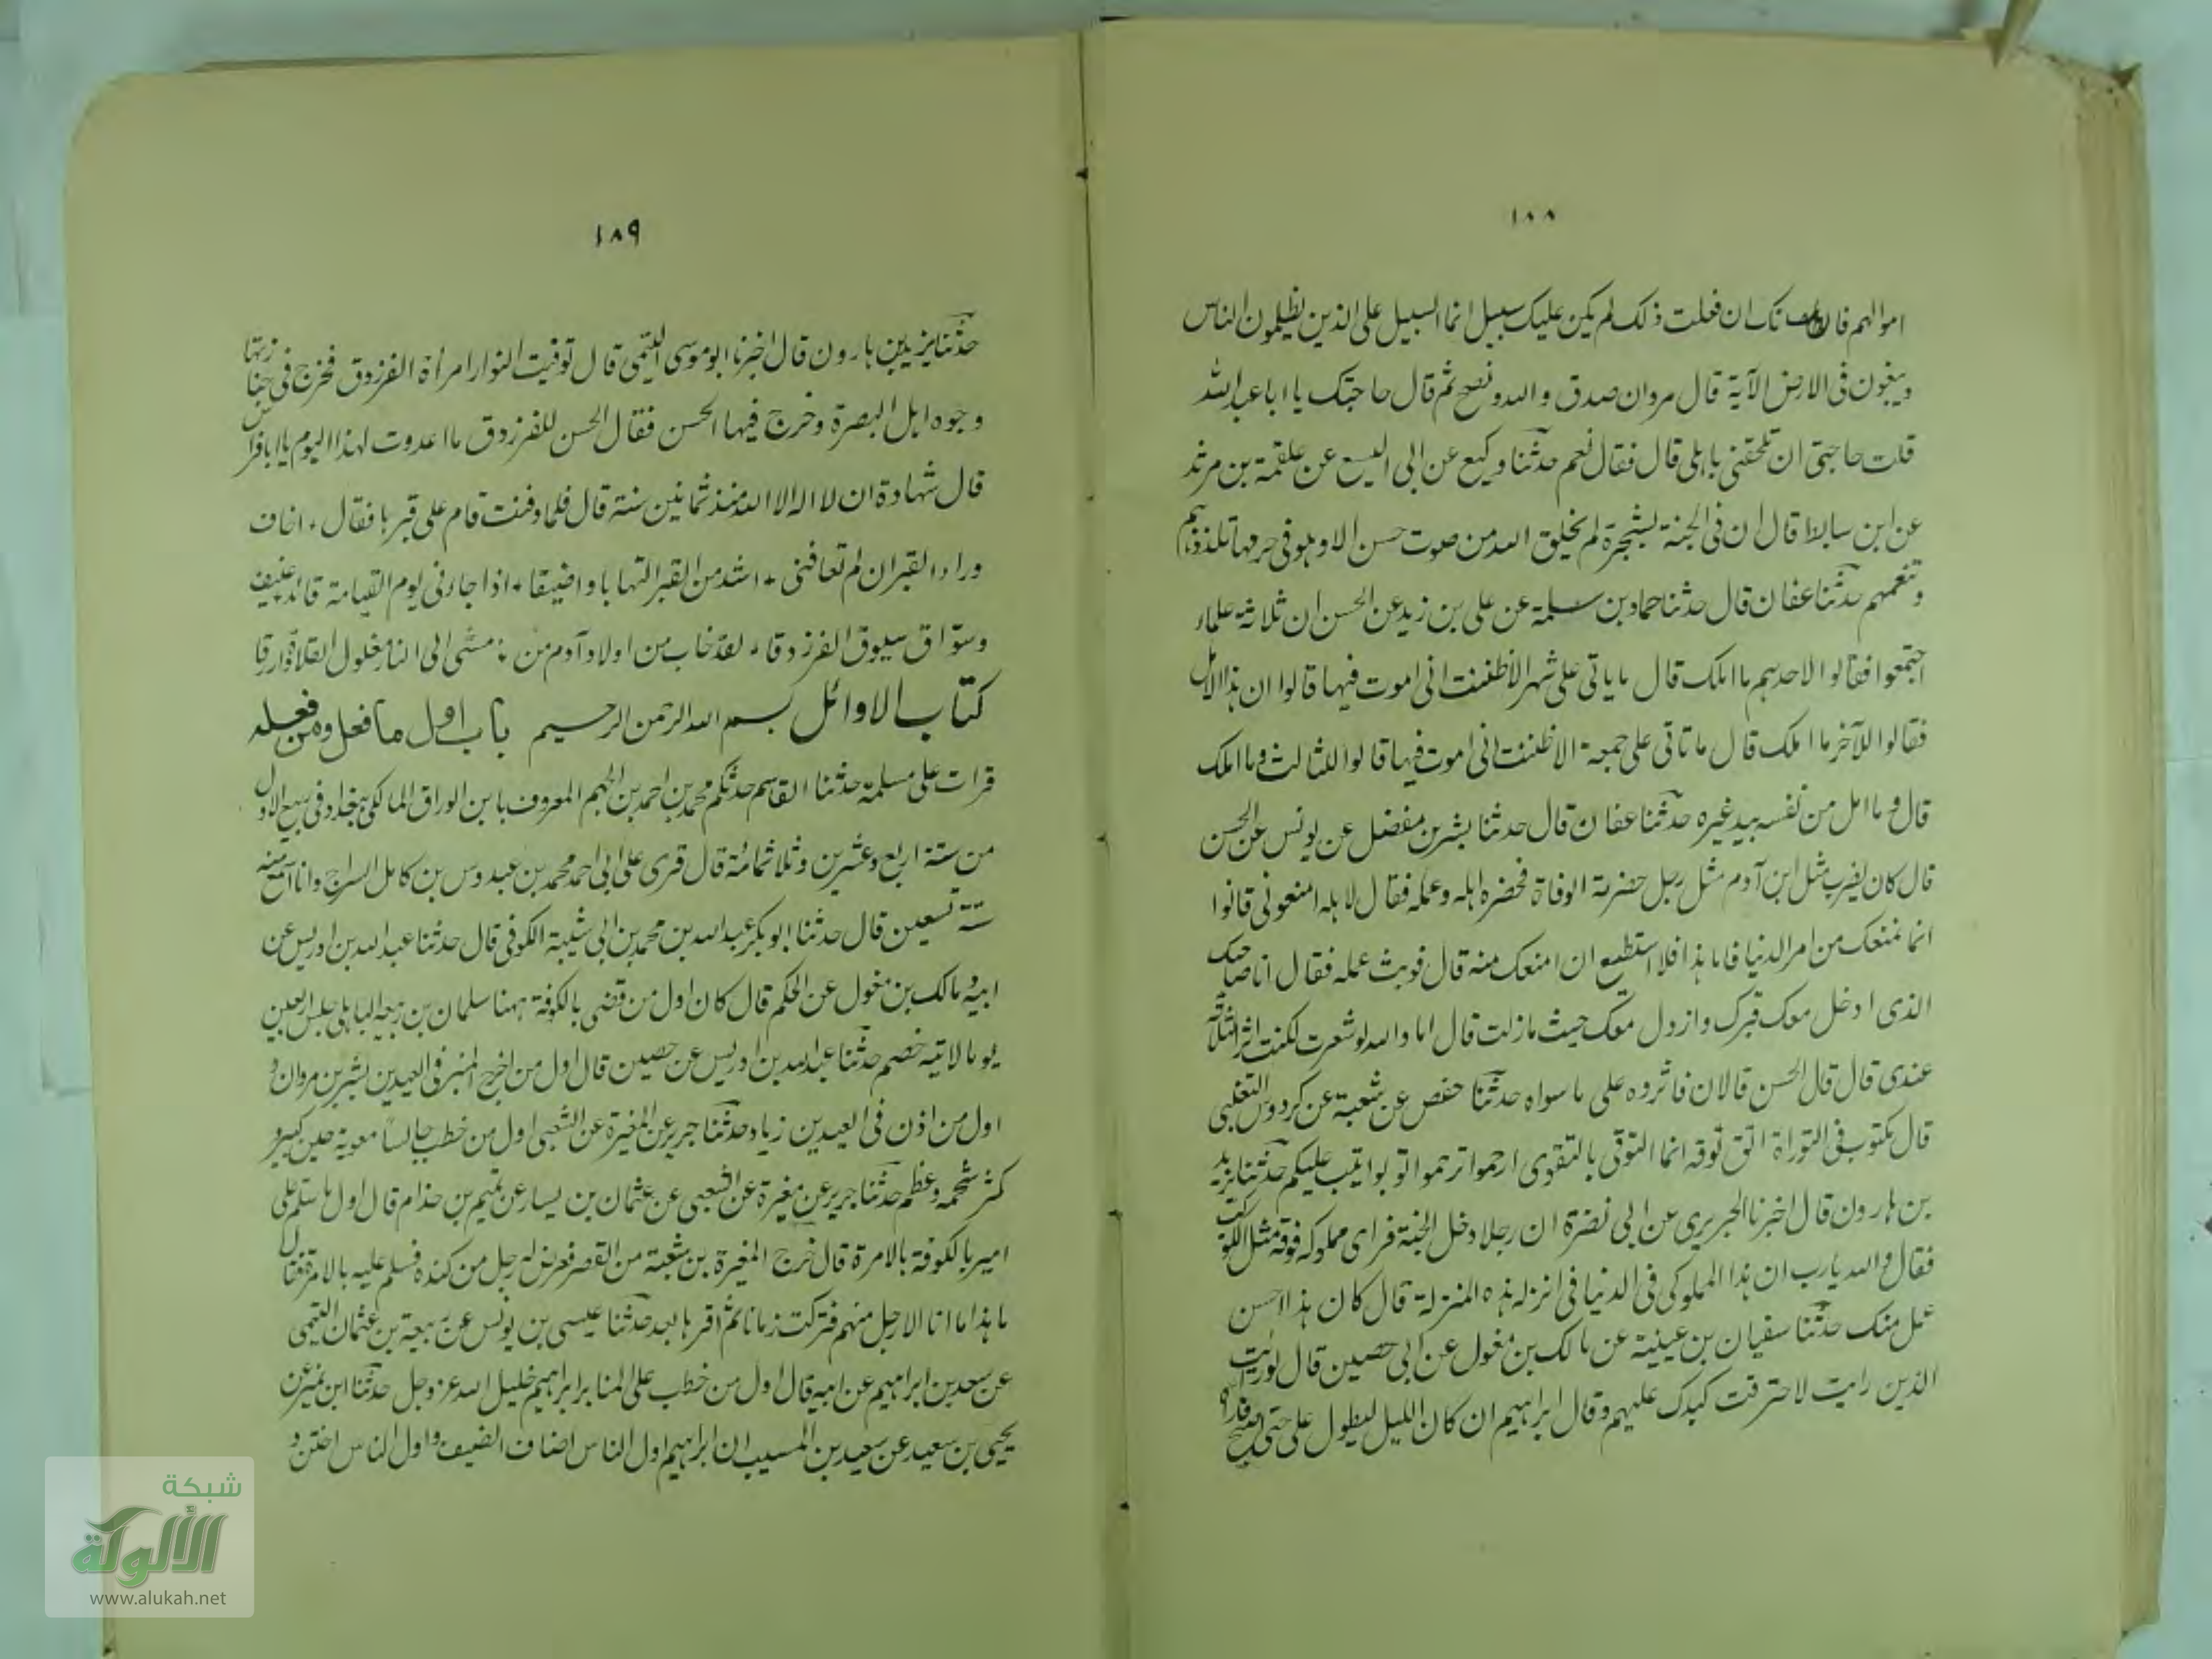 ١٨٨
اموالهم قال فانك ان فعلت ذلك لم يكن عليك سبيل انما السبيل على الذين يظلمون الناس
ويبغون فى الارض الآية قال مروان صدق والله ونصح ثم قال حاجتك يا ابا عبد الله
قلت حاجتى ان تلحقنى باهلى قال فقال نعم حدثنا وكيع عن ابى عن علقمة بن مرثد
عن ابن سابط قال ان فى الجنة لشجرة لم يخلق الله من صوت حسن الا وهو فى جرمها تلذذهم
وتنعمهم حدثنا عفان قال حدثنا حماد بن سلمة عن على بن زيد عن الحسن ان ثلاثة علماء
اجتمعوا فقالوا لاحدهم ما املك قال ما ياتى على شهر الا ظننت انى اموت فيها قالوا ان هذا الامل
فقالوا للآخر ما املك قال ما تاتى على جمعة الا ظننت انى اموت فيها قالوا للثالث وما املك
قال وما امل من نفسه بيد غيره حدثنا عفان قال حدثنا بشر بن مفضل عن يونس عن الحسن
قال كان يضرب مثل ابن آدم مثل رجل حضرته الوفاة فحضره اهله وعمله فقال لاهله امنعونى قالوا
انما نمنعك من امر الدنيا فاما هذا فلا استطيع ان امنعك منه قال فوبث عمله فقال انا صاحبك
الذى ادخل معك قبرك وازول معك حيث مازلت قال اما والله لو شعرت لكنت اثر الثلاثة
عندى قال قال الحسن قالان فاثروه على ما سواه حدثنا حفص عن شعبة عن كردوس التغلبى
قال مكتوب فى التوراة اتق توقه انما التوقى بالتقوى ارحموا ترحموا توبوا يتب عليكم حدثنا يزيد
بن هارون قال اخبرنا الجريرى عن ابى نضرة ان رجلا دخل الجنة فراى مملوكه فوقه مثل الكوكب
فقال والله يارب ان هذا المملوكى فى الدنيا فى انزله هذه المنزلة قال كان هذا احسن
عمل منك حدثنا سفيان بن عيينة عن مالك بن مغول عن ابى حصين قال لو رايت
الذين رايت لاحترقت كبدك عليهم وقال ابراهيم ان كان الليل ليطول على حتى اصبح
١٨٩
حدثنا يزيد بن هارون قال اخبرنا ابو موسى التيمى قال توفيت النوار امرأة الفرزدق فخرج فى جنازتها
وجوه اهل البصرة وخرج فيها الحسن فقال الحسن للفرزدق ما اعدوت لهذا اليوم يا ابا فراس
قال شهادة ان لا اله الا الله منذ ثمانين سنة قال فلما دفنت قام على قبرها فقال ٭ اخاف
وراء القبر ان لم تعافنى ٭ اشد من القبر التهابا واضيقا ٭ اذا جاءنى يوم القيامة قائد عنيف
وسوّاق يسوق الفرزدقا ٭ لقد خاب من اولاد آدم من ٭ مشى الى النار مغلول القلادة ازرقا
كتاب الاوائل بسم الله الرحمن الرحيم باب اول ما فعل ومن فعله
قرات على مسلمة حدثنا القاسم حدثكم محمد بن احمد بن الجهم المعروف بابن الوراق المالكى ببغداد فى ربيع الاول
من سنة اربع وعشرين وثلاثمائة قال قرى على ابى احمد محمد بن عبدوس بن كامل السراج وانا اسمع منه
سنة تسعين قال حدثنا ابو بكر عبد الله بن محمد بن ابى شيبة الكوفى قال حدثنا عبد الله بن ادريس عن
ابيه ومالك بن مغول عن الحكم قال كان اول من قضى بالكوفة ههنا سلمان بن ربيعة الباهلى جلس اربعين
يوما لا ياتيه خصم حدثنا عبد الله بن ادريس عن حصين قال اول من اخرج المنبر فى العيدين بشر بن مروان و
اول من اذن فى العيدين زياد حدثنا جرير عن المغيرة عن الشعبى اول من خطب جالسا معوية حين كبر و
كثر شحمه وعظم حدثنا جرير عن مغيرة عن الشعبى عن عثمان بن يسار عن تميم بن حذام قال اول ما سلم على
امير بالكوفة بالامرة قال خرج المغيرة بن شعبة من القصر فعرض له رجل من كندة فسلم عليه بالامرة فقال
ما هذا ما انا الا رجل منهم فتركت زمانا ثم اقرها بعد حدثنا عيسى بن يونس عن ربيعة بن عثمان التيمى
عن سعد بن ابراهيم عن ابيه قال اول من خطب على المنابر ابراهيم خليل الله عز وجل حدثنا ابن نمير عن
يحيى بن سعيد عن سعيد بن المسيب ان ابراهيم اول الناس اضاف الضيف واول الناس اختتن و
شبكة
الألوكة
www.alukah.net